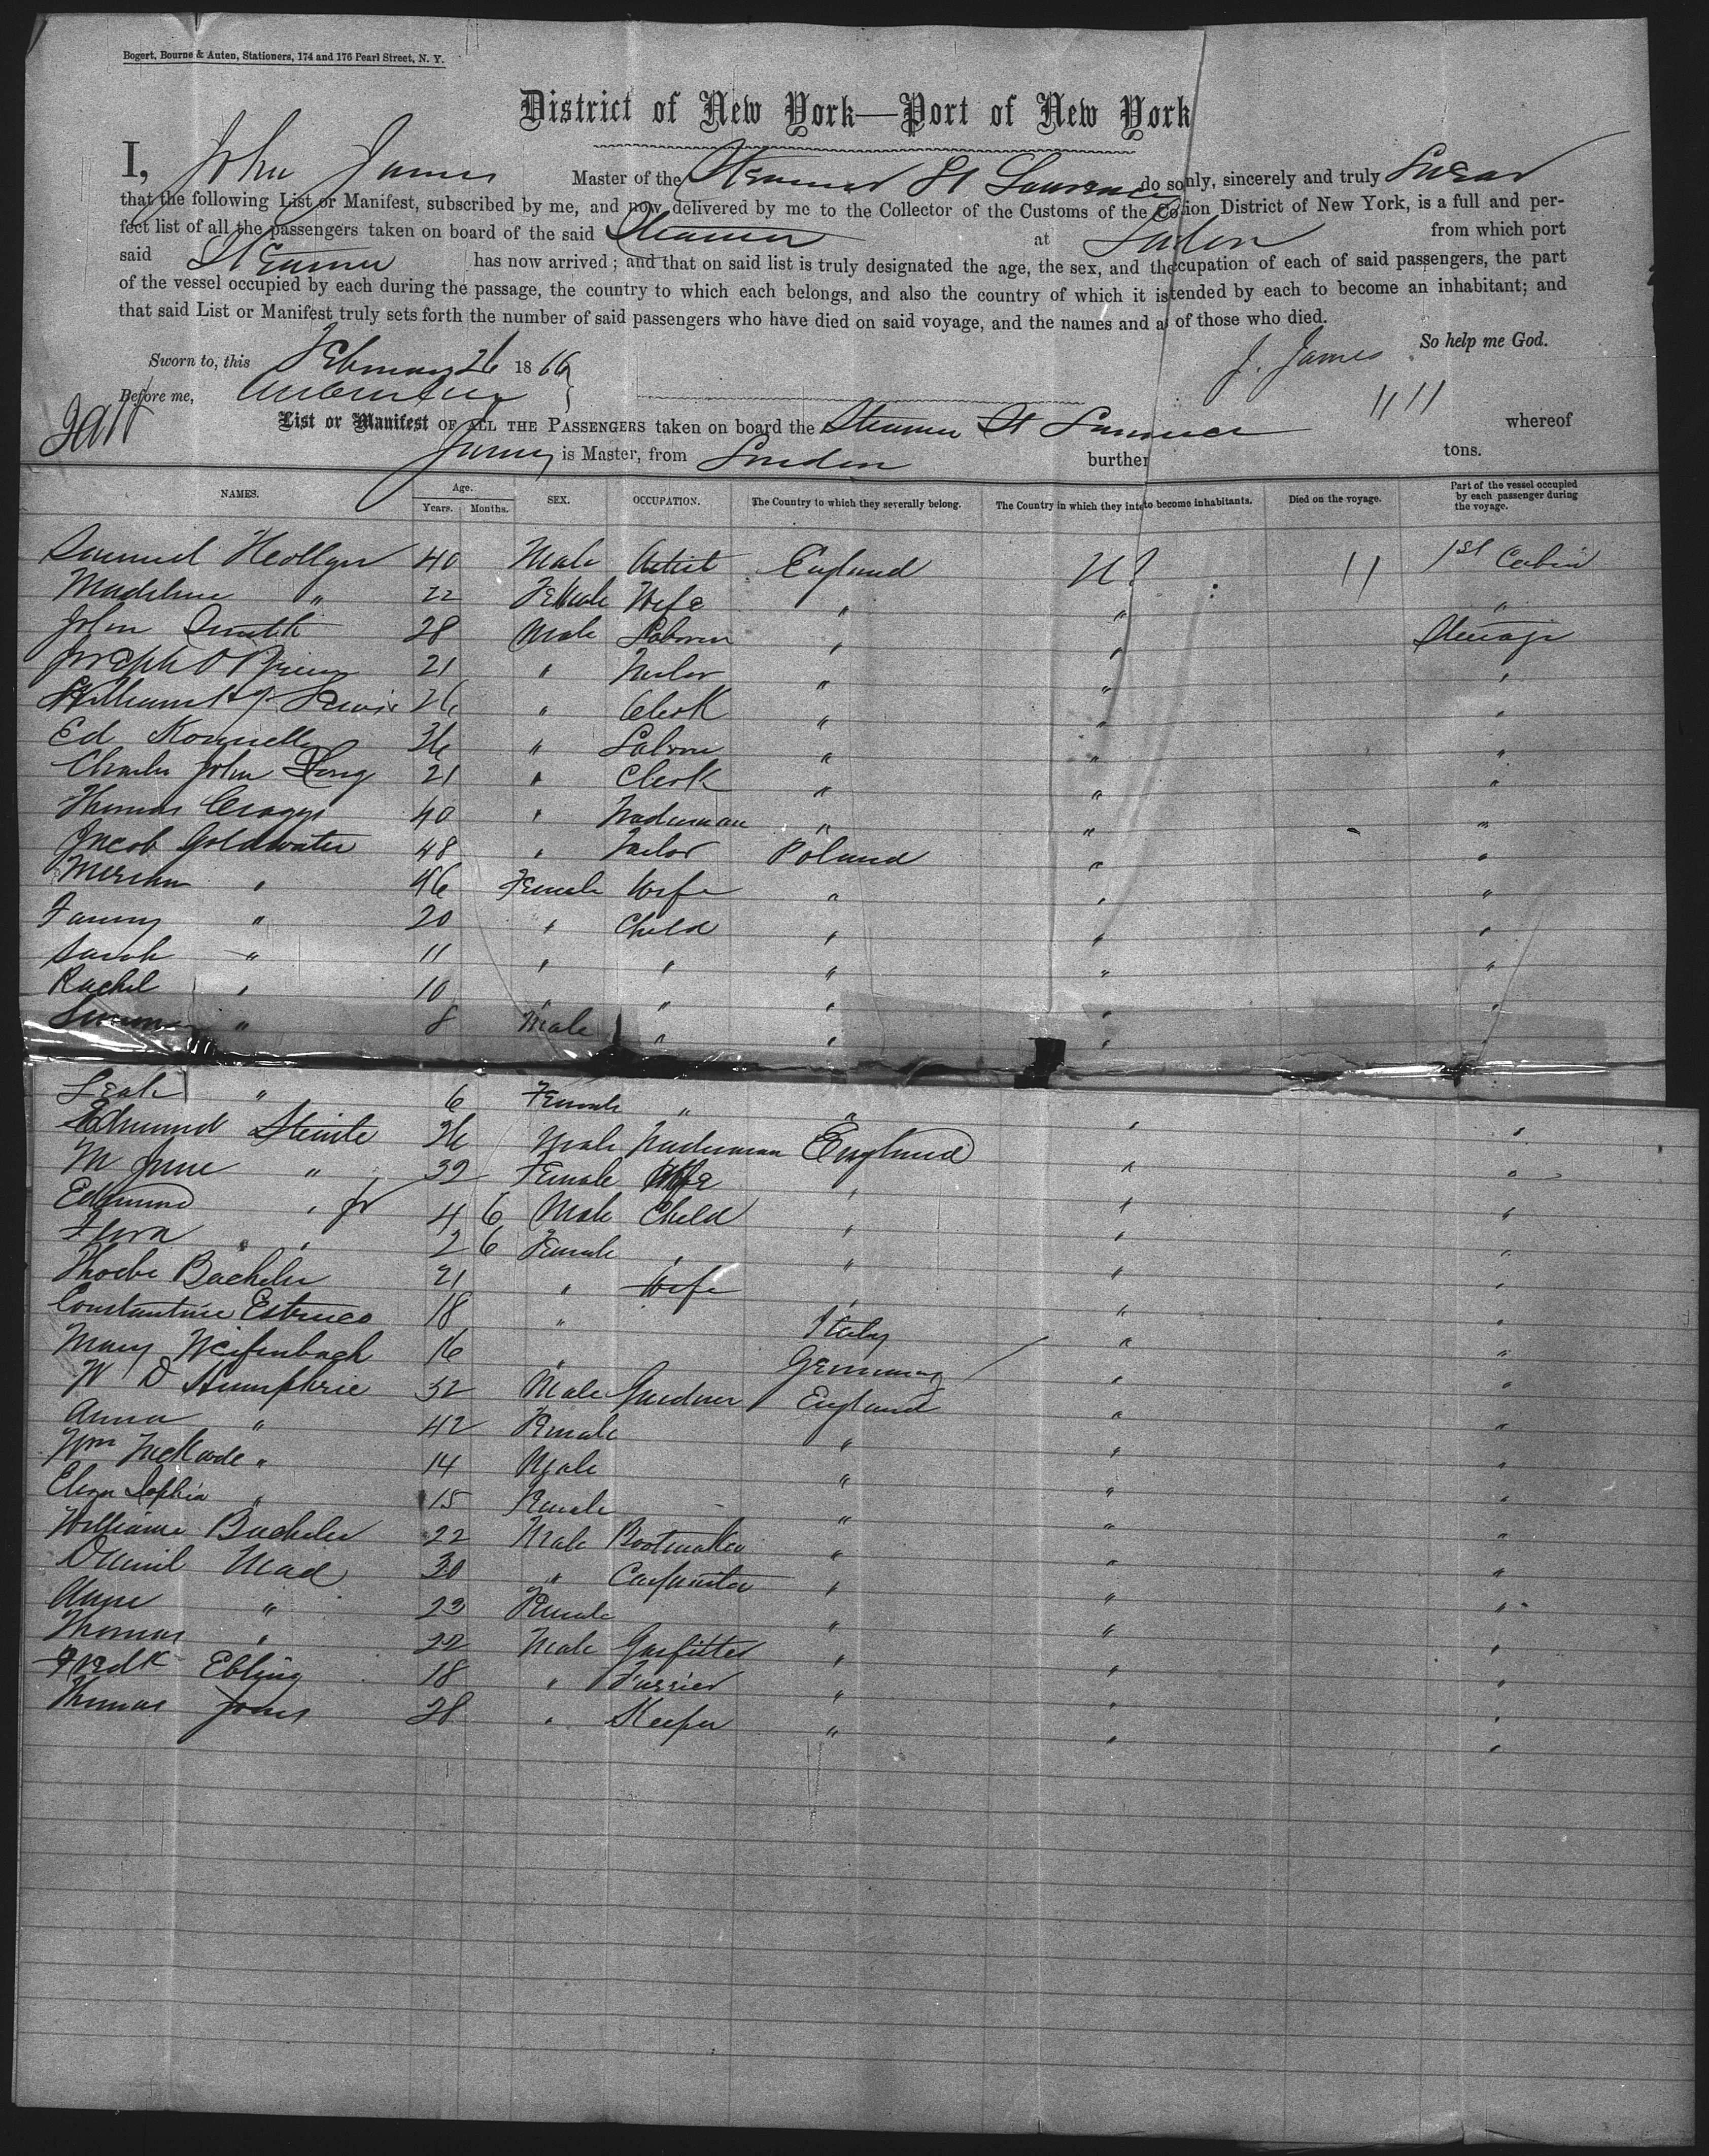 Bogert, Bourne & Auten, Stationers, 174 and 176 Pearl Street, N. Y.
District of New York—Port of New York
I, John James Master of the Steamer St Lawrence do so nly, sincerely and truly Swear
that the following List or Manifest, subscribed by me, and now delivered by me to the Collector of the Customs of the Co ion District of New York, is a full and per-
fect list of all the passengers taken on board of the said Steamer at London from which port
said Steamer has now arrived; and that on said list is truly designated the age, the sex, and the cupation of each of said passengers, the part
of the vessel occupied by each during the passage, the country to which each belongs, and also the country of which it is tended by each to become an inhabitant; and
that said List or Manifest truly sets forth the number of said passengers who have died on said voyage, and the names and a of those who died.
So help me God.
Sworn to, this February 26 1866 J. James
Before me,
List or Manifest OF ALL THE PASSENGERS taken on board the Steamer St Lawrence whereof
James is Master, from London burther tons.
NAMES. Age. Years. Months. SEX. OCCUPATION. The Country to which they severally belong. The Country in which they inte to become inhabitants. Died on the voyage. Part of the vessel occupied by each passenger during the voyage.
Samuel 40 Male Artist England 1st Cabin
Madeline " 22 Female Wife " " "
John Smith 28 Male Laborer " " Steerage
Joseph O Brien 21 " Tailor " " "
William Hy Lewis 26 " Clerk " " "
Ed Konnelly 36 " Laborer " " "
Charles John Long 21 " Clerk " " "
Thomas Craggs 40 " Tradesman " " "
Jacob Goldwater 48 " Tailor Poland " "
Miriam " 46 Female Wife " " "
Fanny " 20 " Child " " "
Sarah " 11 " " " " "
Rachel " 10 " " " " "
" 8 Male " " "
Leah " 6 Female " " " "
Edmund 36 Male Tradesman England " "
M Jane " 32 Female Wife " " "
Edmund " Jr 4 6 Male Child " " "
Flora " 2 6 Female " " " "
Phoebe Bachelor 21 " Wife " " "
Constantine 18 " Italy " "
Mary Weifenbach 16 " Germany " "
W D Humphrie 32 Male Gardner England " "
Anna " 42 Female " " "
Wm " 14 Male " " "
Eliza Sophia " 15 Female " " "
William Bachelor 22 Male Bootmaker " " "
Daniel Mead 30 " Carpenter " " "
Anne " 23 Female " " "
Thomas " 22 Male Gasfitter " " "
Fredk Ebling 18 " Furrier " " "
Thomas Jones 28 " Keeper " " "